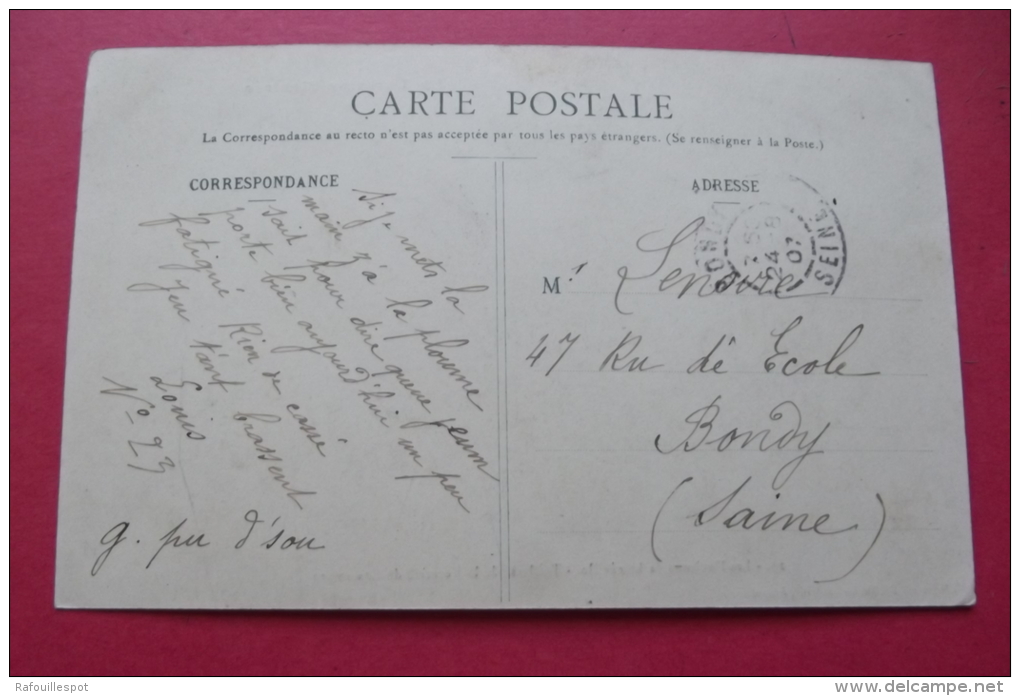 CARTE POSTALE
La Correspondance au recto n'est pas acceptée par tous les pays étrangers. (Se renseigner à la Poste.)
CORRESPONDANCE
Si je mets la
main z'à la ploume
soit pour dire queue jeum
porte bien aujourd'hui un peu
fatigué Rien de cassé
jeu t'ant brassent
Louis
No 23
g. pu d'sou
ADRESSE
BONDY
24 -8
07
SEINE
Mr Lenoire
47 Ru dê Ecole
Bondy
(Saine)
Rafouillespot
www.delcampe.net